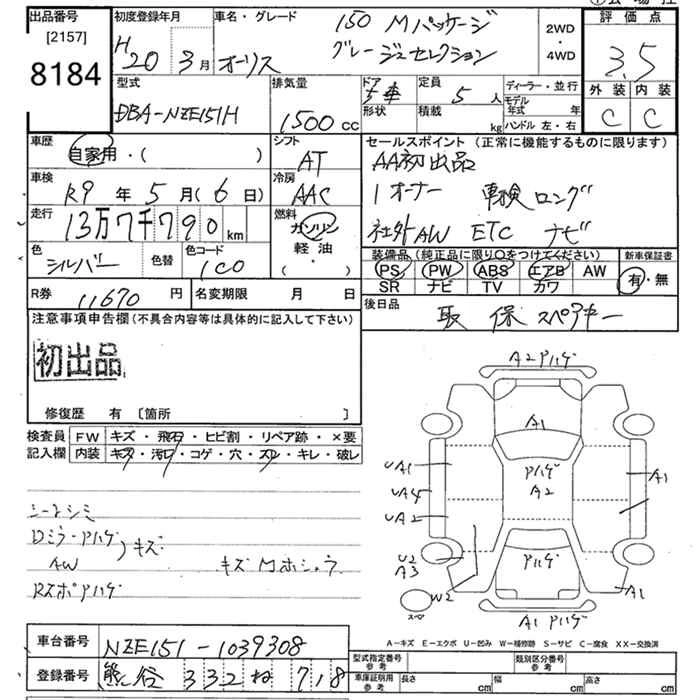 出品番号 初度登録年月 車名・グレード 150 Mパッケージ 2WD 評価点
[2157] H20 3月 オーリス グレージュセレクション ・4WD 3.5
8184 型式 排気量 ドア 定員 ディーラー・並行 外装 内装
DBA-NZE151H 1500cc 5 形状 積載 5人 kg モデル年式 年 ハンドル 左・右 C C
車歴 自家用・( ) シフト AT セールスポイント (正常に機能するものに限ります)
車検 R9年5月(6日) 冷房 AAC AA初出品
走行 13万7千790km 燃料 ガソリン 軽油 ( ・ ) 1オーナー 車検ロング
社外AW ETC ナビ
色 シルバー 色替 色コード 1C0 装備品 (純正品に限り○をつけてください) 新車保証書
PS PW ABS エアB AW 有・無
SR ナビ TV カワ
R券 11670円 名変期限 月 日 後日品 取 保 スペアキー
注意事項申告欄 (不具合内容等は具体的に記入して下さい)
初出品
修復歴 有 [箇所 ]
検査員 FW キズ・飛石・ヒビ割・リペア跡・×要
記入欄 内装 キズ・汚れ・コゲ・穴・スレ・キレ・破レ
A2 Pハゲ
A1
Pハゲ
A2
UA1
UA4
UA2
A1
U2
A3
Pハゲ
W2
A1
スペア
A1 Pハゲ
シートシミ
Dミラ-Pハゲ
AW キズ
キズ Mホシュウ
RスポPハゲ
A-キズ E-エクボ U-凹み W-補修跡 S-サビ C-腐食 XX-交換済
車台番号 NZE151-1039308 型式指定番号 参考 類別区分番号 参考
登録番号 熊谷 332 ね 718 車庫証明用 参考 長さ cm 幅 cm 高さ cm